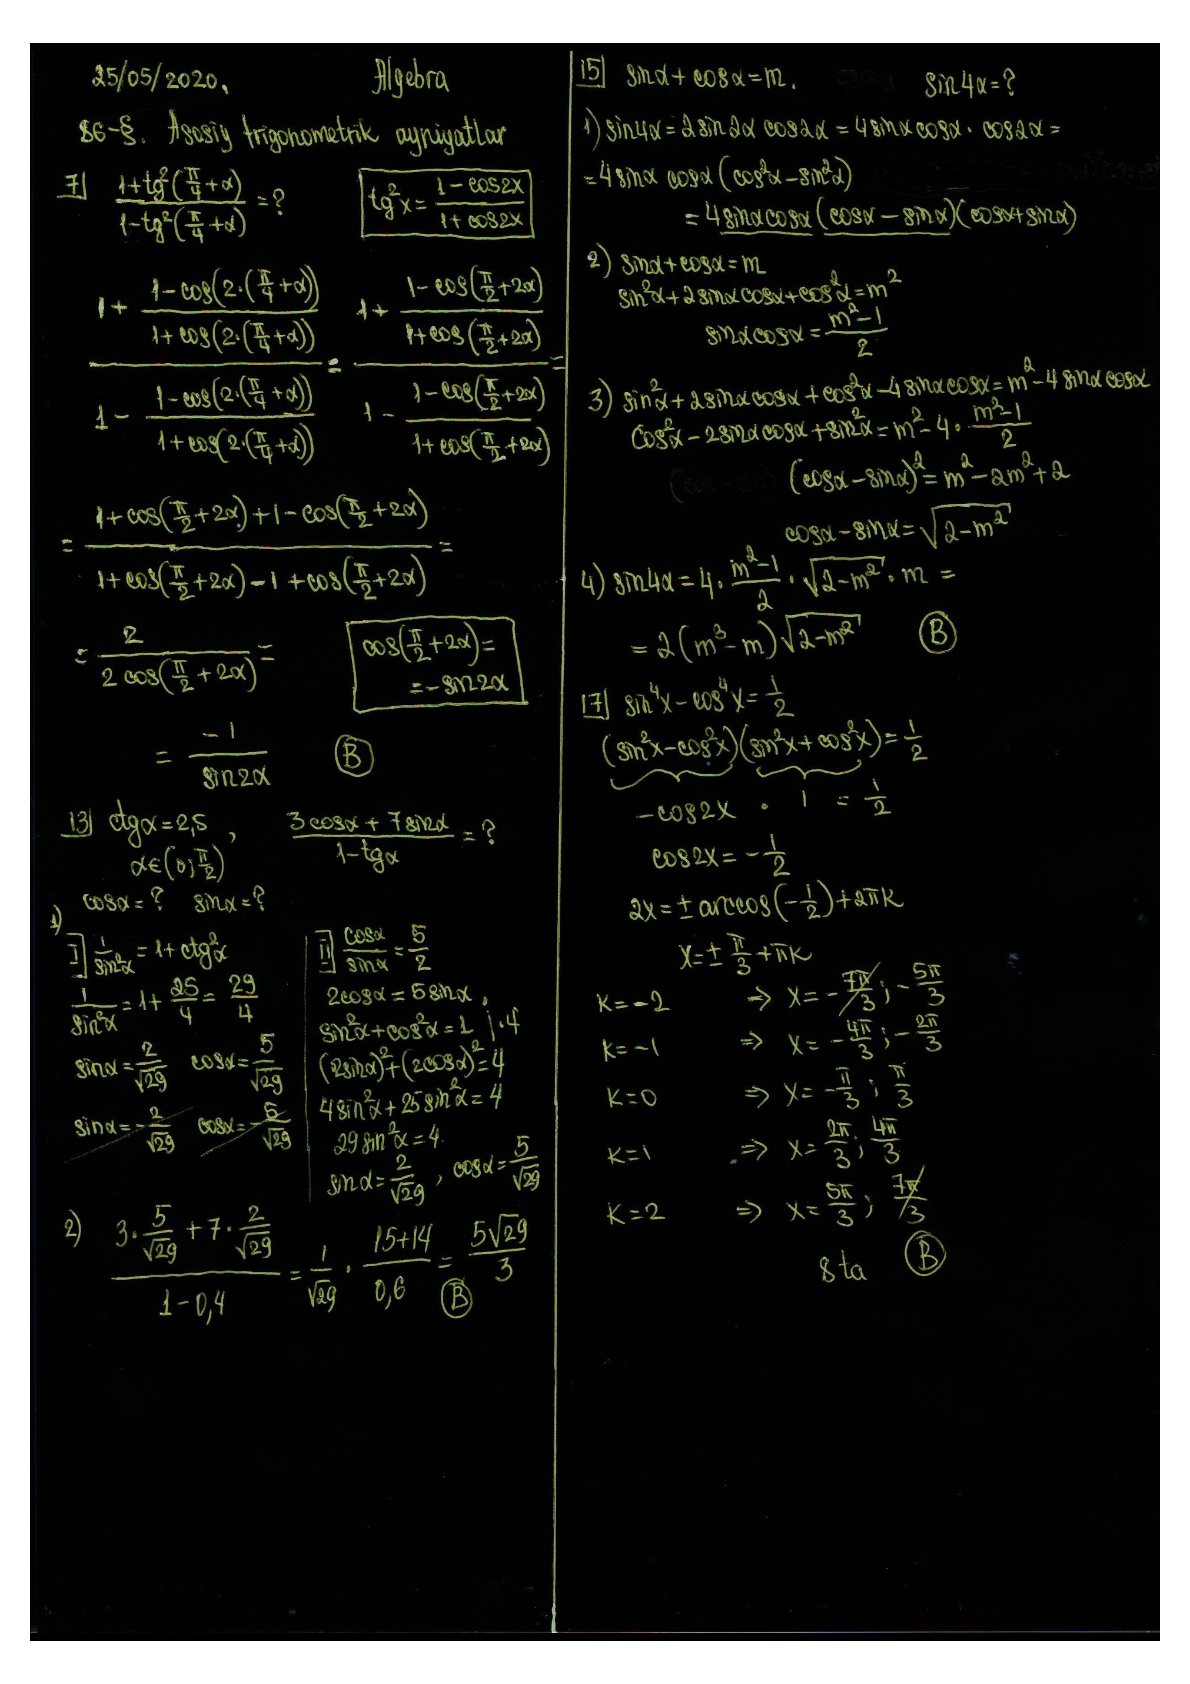 25/05/2020. Algebra
86-§. Asosiy trigonometrik ayniyatlar
7] (1+tg²(π/4+α))/(1-tg²(π/4+α)) = ? tg²x = (1-cos2x)/(1+cos2x)
(1+ (1-cos(2·(π/4+α)))/(1+cos(2·(π/4+α))))/(1- (1-cos(2·(π/4+α)))/(1+cos(2·(π/4+α)))) = (1+ (1-cos(π/2+2α))/(1+cos(π/2+2α)))/(1- (1-cos(π/2+2α))/(1+cos(π/2+2α))) =
= (1+cos(π/2+2α)+1-cos(π/2+2α))/(1+cos(π/2+2α)-1+cos(π/2+2α)) =
= 2/(2cos(π/2+2α)) = cos(π/2+2α)=
=-sin2α
= -1/sin2α B
13] ctgα=2,5, (3cosα+7sinα)/(1-tgα) = ?
α∈(0;π/2)
cosα=? sinα=?
1)
I] 1/sin²α = 1+ctg²α
1/sin²α = 1+25/4 = 29/4
sinα=2/√29 cosα=5/√29
sinα=-2/√29 cosα=-5/√29
II] cosα/sinα = 5/2
2cosα=5sinα,
sin²α+cos²α=1 |·4
(2sinα)²+(2cosα)²=4
4sin²α+25sin²α=4
29sin²α=4
sinα=2/√29, cosα=5/√29
2) (3·5/√29+7·2/√29)/(1-0,4) = 1/√29 · (15+14)/0,6 = 5√29/3 B
15] sinα+cosα=m. sin4α=?
1) sin4α=2sin2α cos2α=4sinα cosα·cos2α=
=4sinα cosα(cos²α-sin²α)
=4sinαcosα(cosα-sinα)(cosα+sinα)
2) sinα+cosα=m
sin²α+2sinαcosα+cos²α=m²
sinαcosα=(m²-1)/2
3) sin²α+2sinαcosα+cos²α-4sinαcosα=m²-4sinαcosα
cos²α-2sinαcosα+sin²α=m²-4·(m²-1)/2
(cosα-sinα)²=m²-2m²+2
cosα-sinα=√(2-m²)
4) sin4α=4·(m²-1)/2·√(2-m²)·m=
=2(m³-m)√(2-m²) B
17] sin⁴x-cos⁴x=1/2
(sin²x-cos²x)(sin²x+cos²x)=1/2
-cos2x · 1 = 1/2
cos2x=-1/2
2x=±arccos(-1/2)+2πk
x=±π/3+πk
k=-2 ⇒ x=-7π/3; -5π/3
k=-1 ⇒ x=-4π/3; -2π/3
k=0 ⇒ x=-π/3; π/3
k=1 ⇒ x=2π/3; 4π/3
k=2 ⇒ x=5π/3; 7π/3
8 ta B